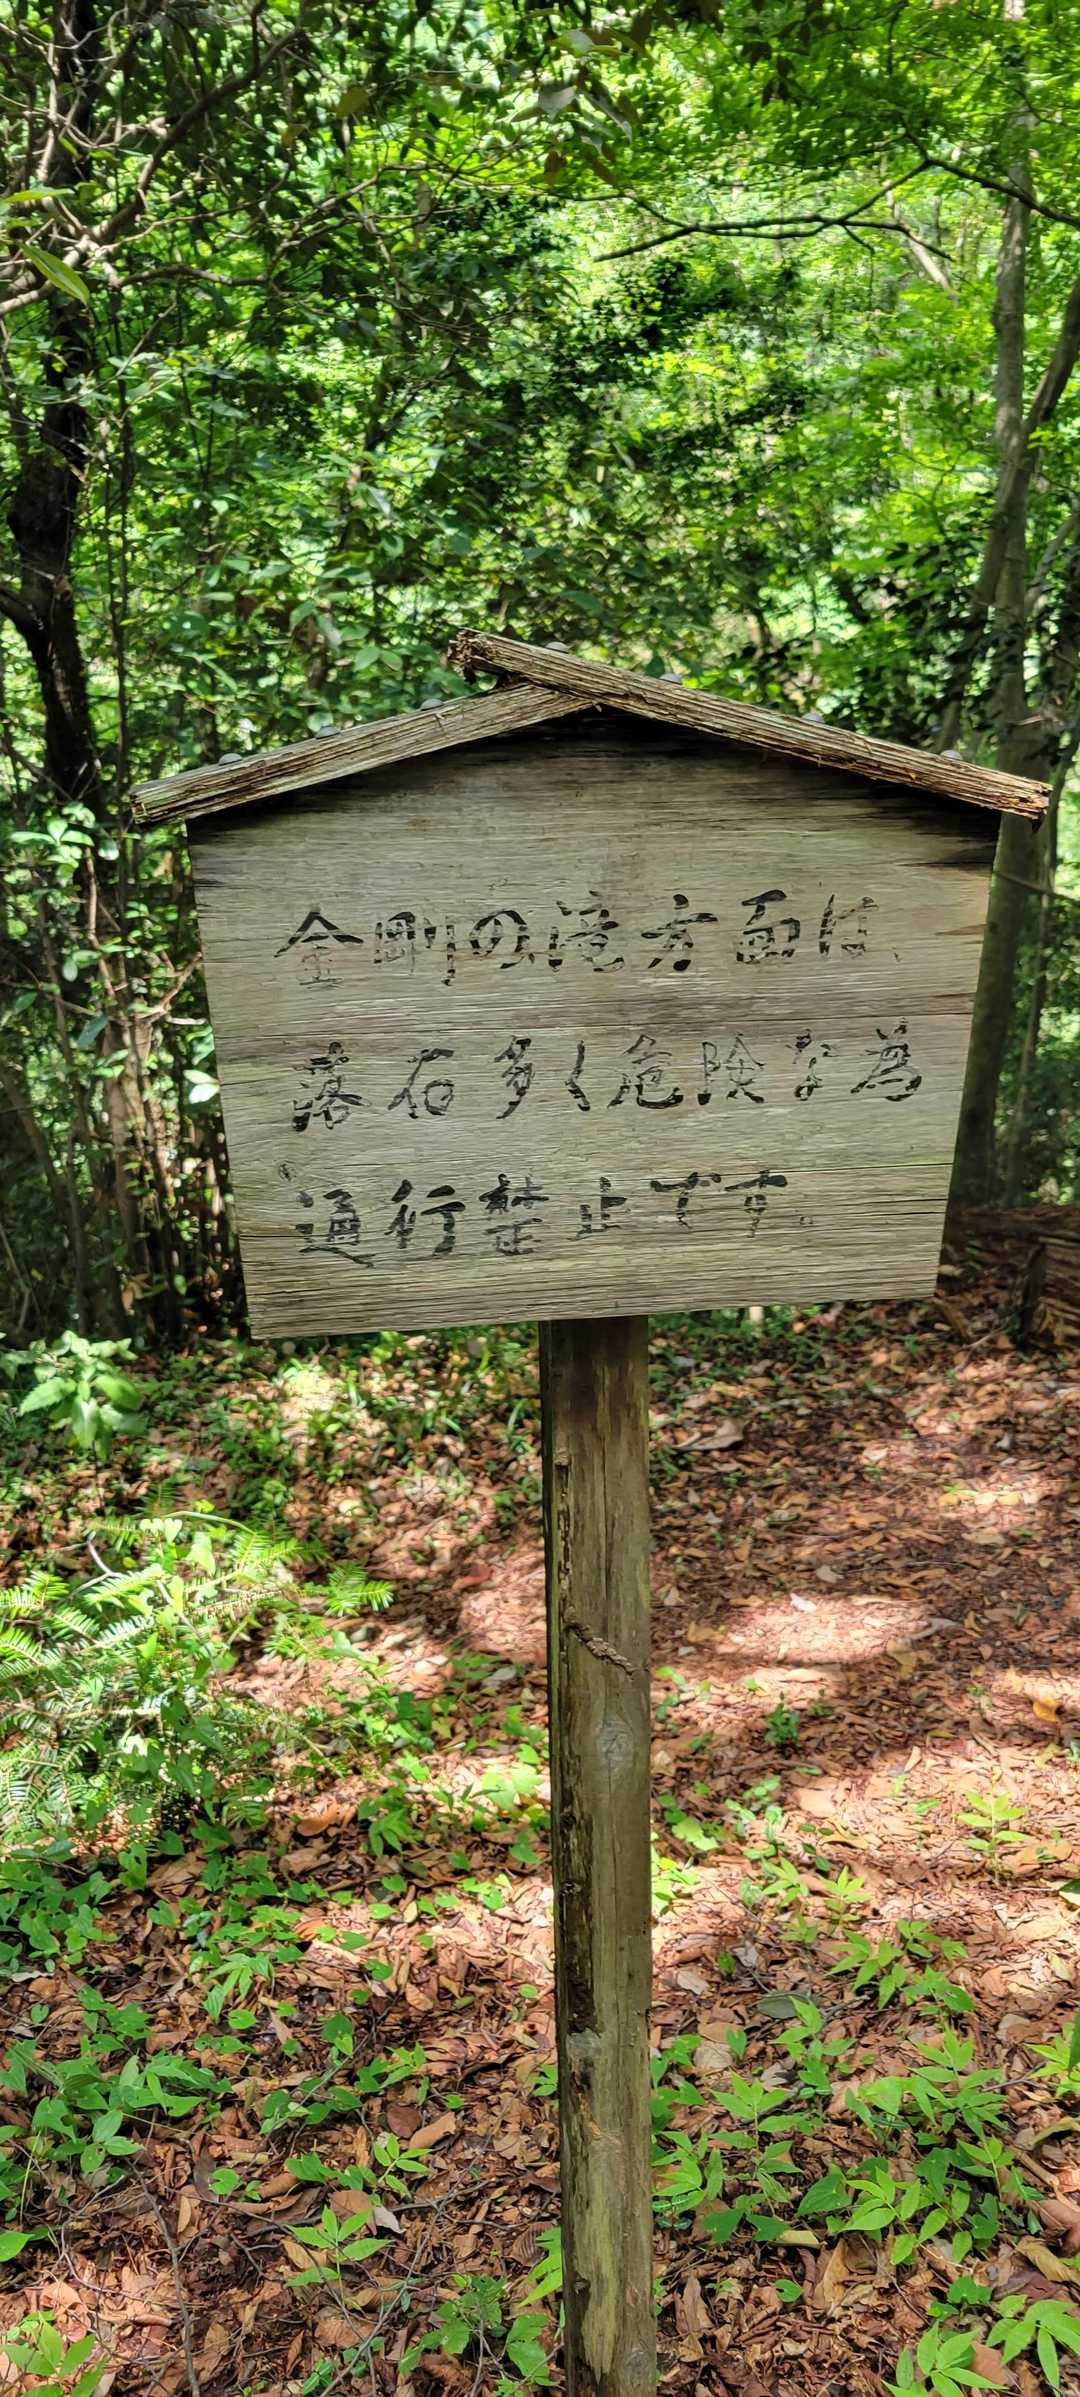 金剛の滝方面は、
落石多く危険な為
通行禁止です。